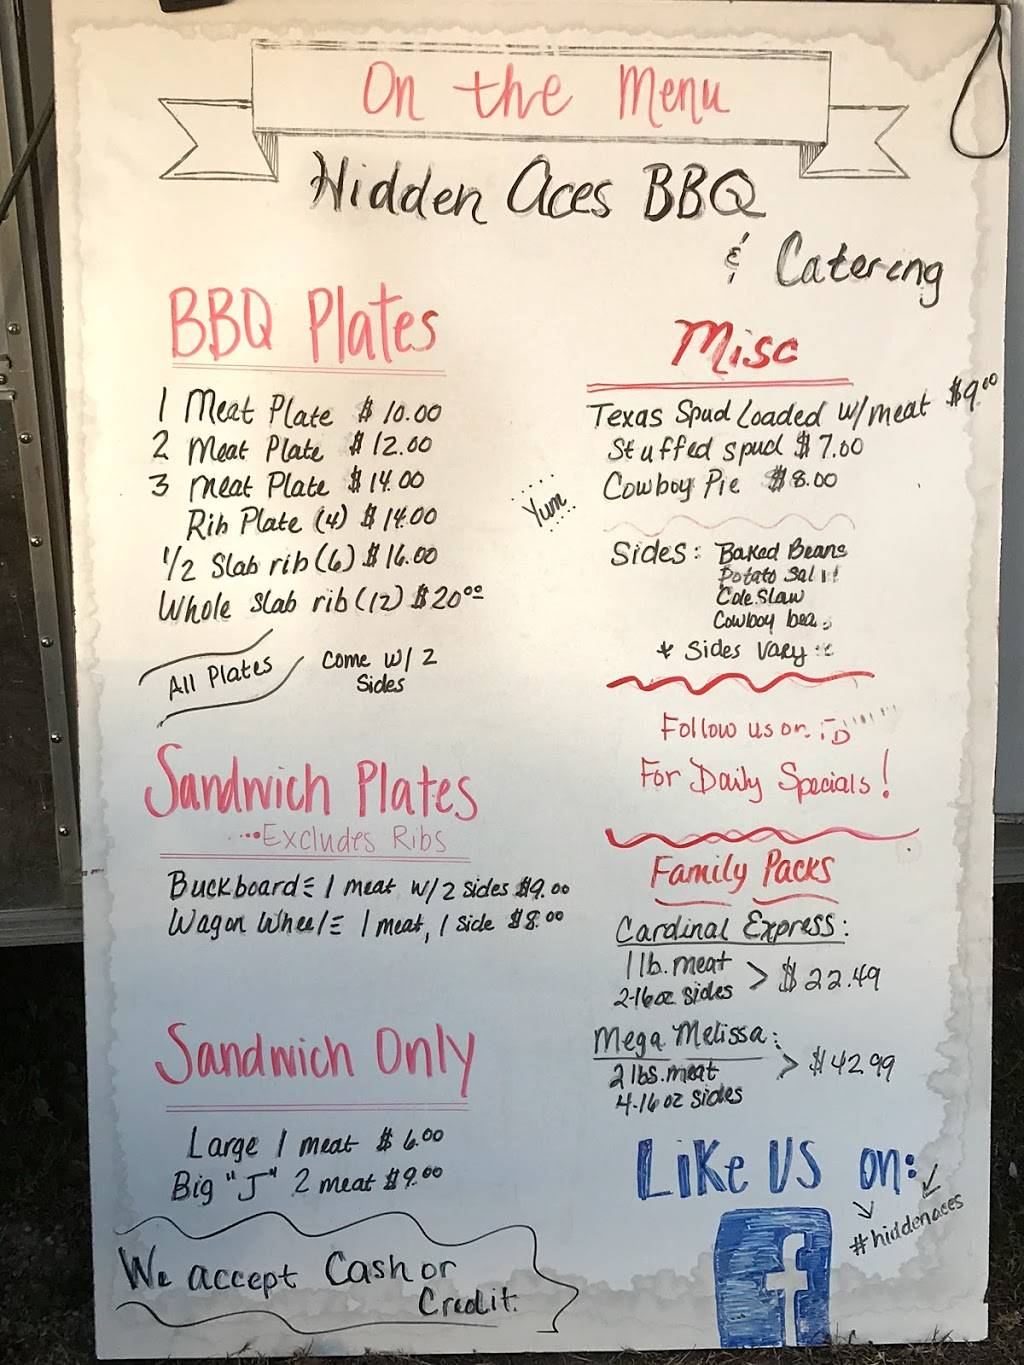 On the Menu
Hidden Aces BBQ
& Catering
BBQ Plates
1 Meat Plate $10.00
2 Meat Plate $12.00
3 Meat Plate $14.00
Rib Plate (4) $14.00
1/2 Slab rib (6) $16.00
Whole Slab rib (12) $20.00
All Plates Come w/ 2
Sides
Sandwich Plates
....Excludes Ribs
Buckboard: 1 meat w/ 2 sides $9.00
Wagon Wheel: 1 meat, 1 side $8.00
Sandwich Only
Large 1 meat $6.00
Big "J" 2 meat $9.00
We accept Cash or
Credit.
Misc
Texas Spud Loaded w/meat $9.00
Stuffed spud $7.00
Cowboy Pie $8.00
Yum
Sides: Baked Beans
Potato
Cole Slaw
Cowboy
* Sides Vary
Follow us on
For Daily Specials!
Family Packs
Cardinal Express:
1 lb. meat
2-16oz sides > $22.49
Mega Melissa:
2 lbs. meat
4-16oz sides > $42.99
Like US on:
#hiddenaces
f